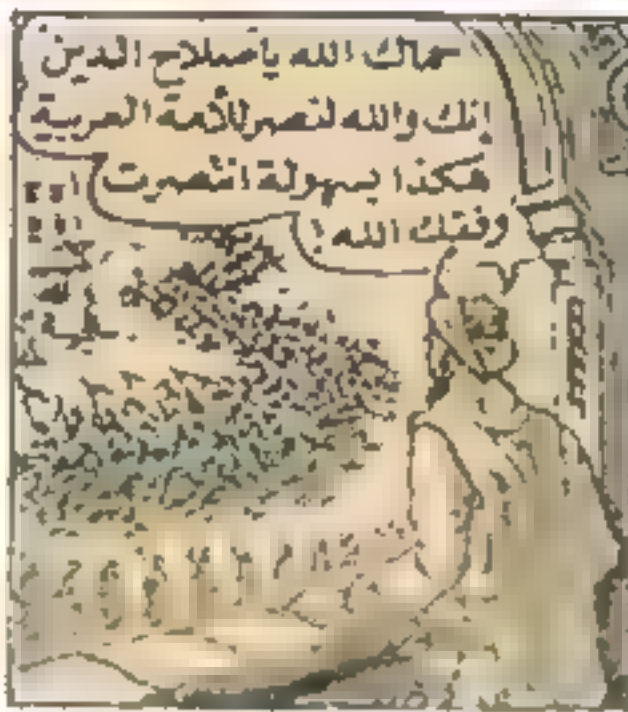 حماك الله ياصلاح الدين
إنك والله لنصر للأمة العربية
هكذا بسهولة انتصرت
وفقك الله !